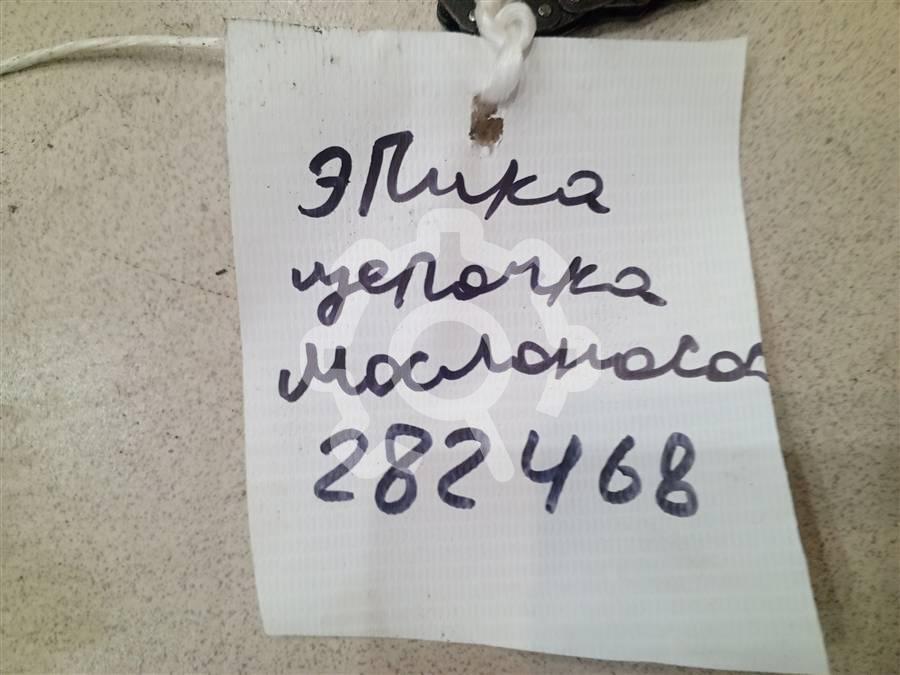 Эпика
цепочка
маслонаса
282468